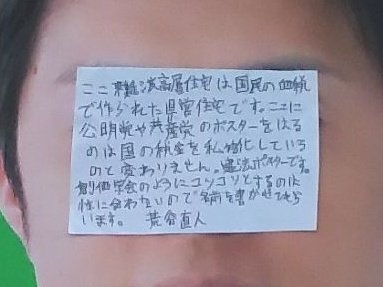 ここ難波高層住宅は国民の血税
で作られた県営住宅です。ここに
公明党や共産党のポスターをはる
のは国の税金を私物化している
のと変わりません。違法ポスターです。
創価学会のようにコソコソとするのは
性に合わないので名前を書かせてもら
います。 荒谷直人